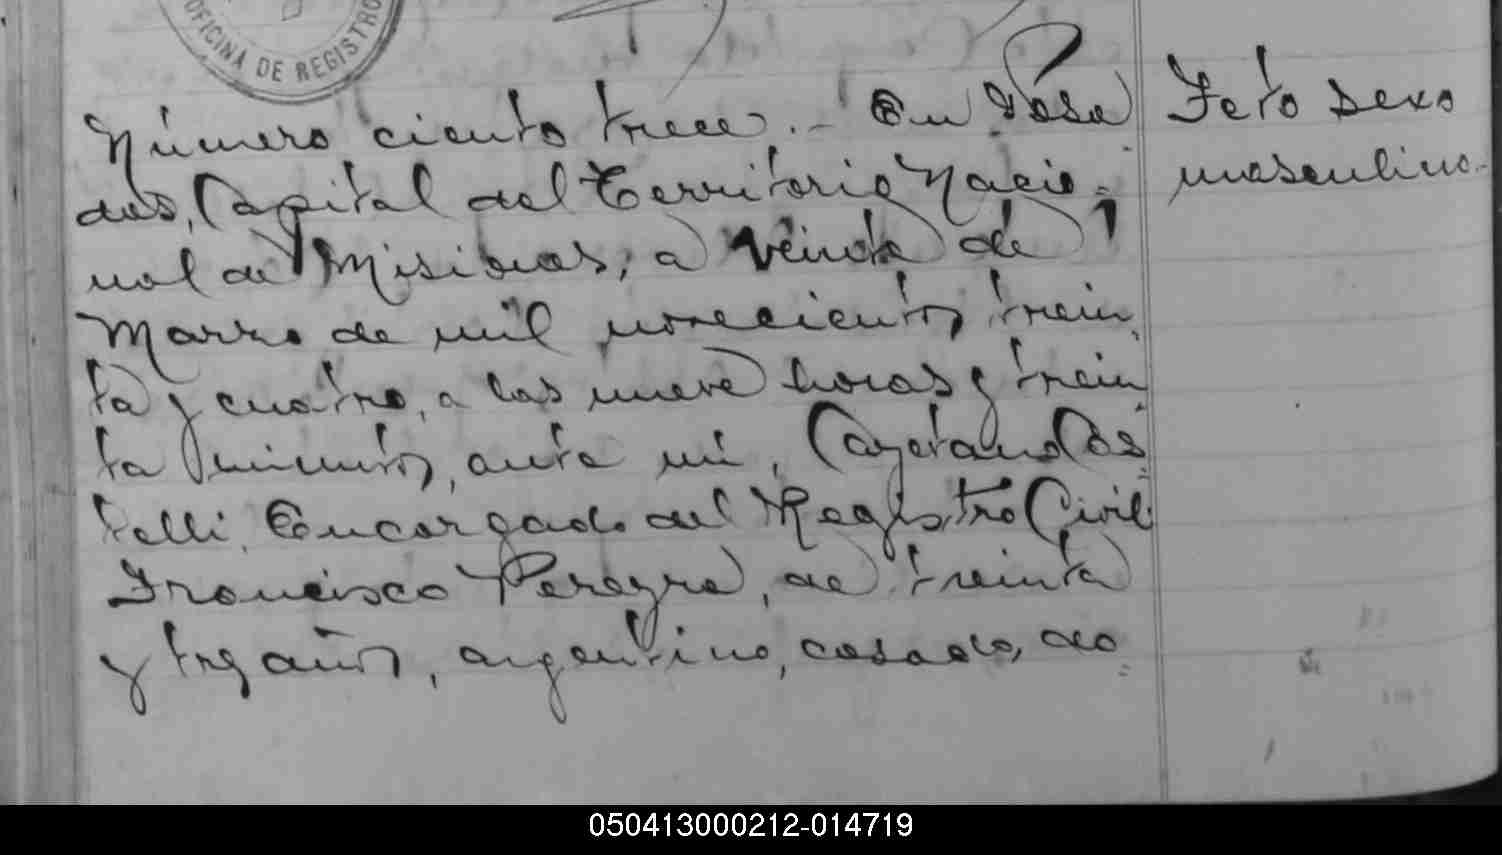 OFICINA DE REGISTRO
Número ciento trece.- En Posa
das, Capital del Territorio Nacio=
nal de Misiones, a veinte de
Marzo de mil novecientos trein
ta y cuatro, a las nueve horas y trein
ta minutos, ante mi, Cayetano Cas=
telli, Encargado del Registro Civil
Francisco Pereyra, de treinta
y tres años, argentino, casado, do=
Feto sexo
masculino.-
050413000212-014719